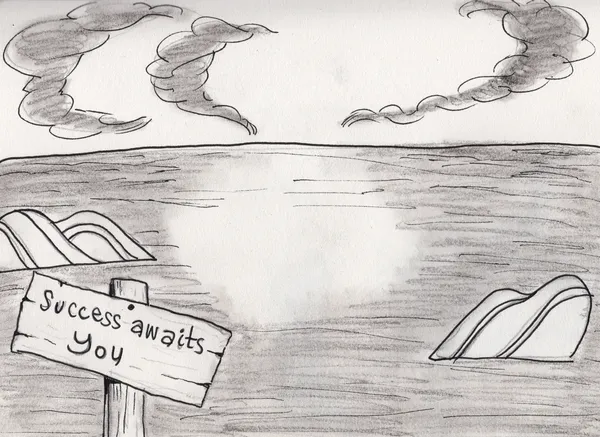 Success awaits
You